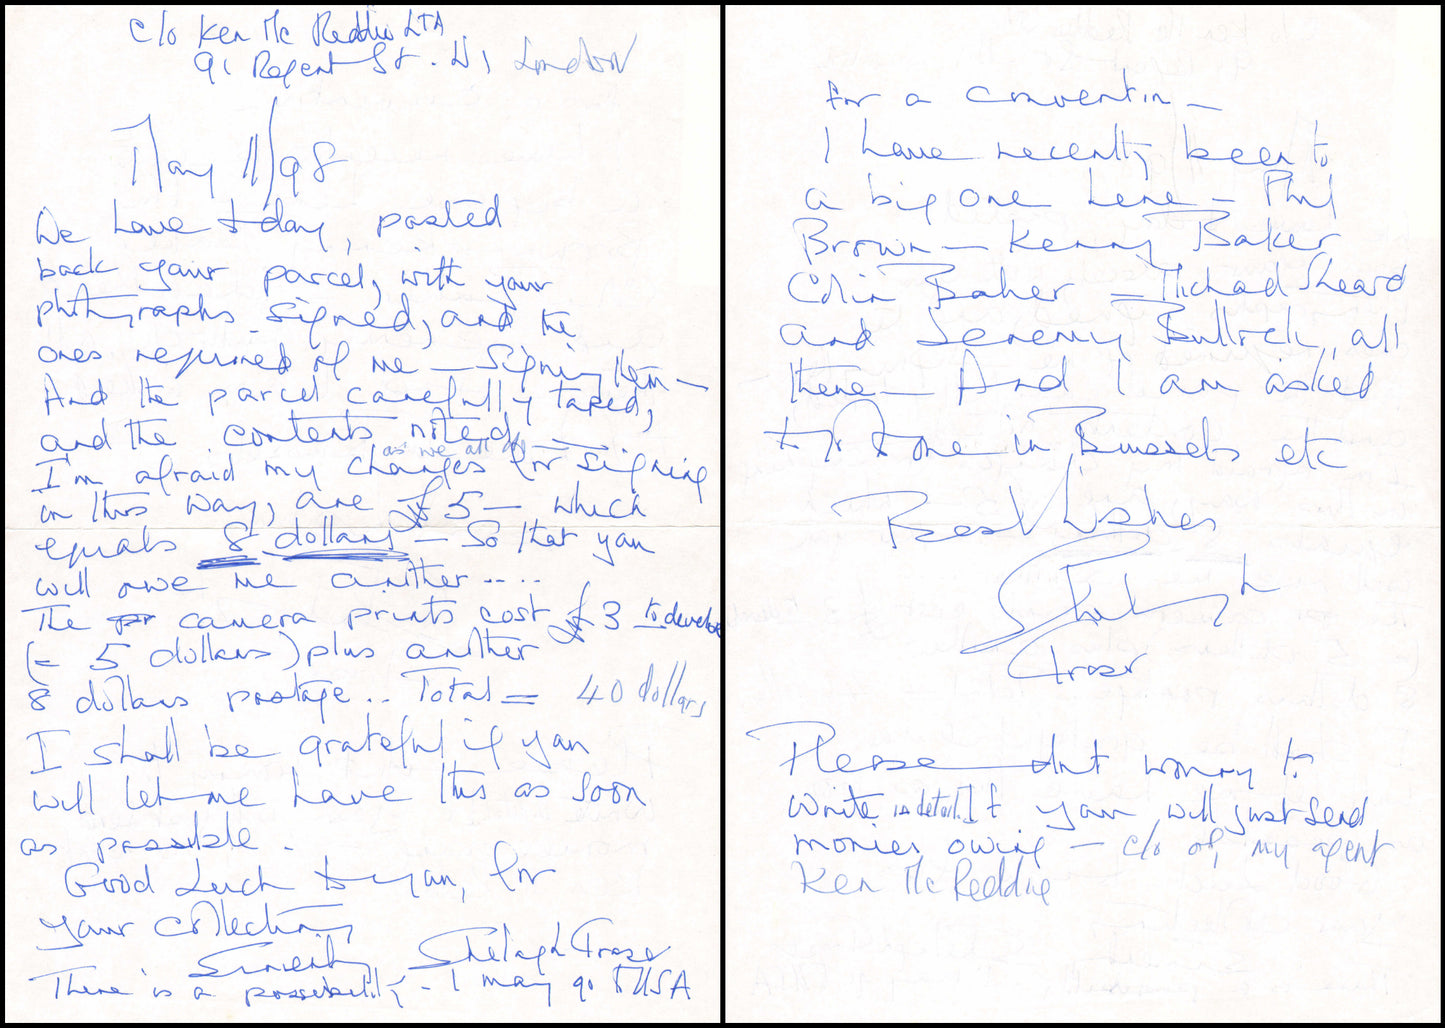 c/o Ken Mc Reddie LTA
91 Regent St. W1 London
May 11/98
We have today, posted
back your parcel, with your
photographs signed, and the
ones required of me — signing them —
And the parcel carefully taped,
and the contents noted —
as we all do
I'm afraid my charges for signing
in this way, are £5 — which
equals 8 dollars — So that you
will owe me another ....
The pr camera prints cost £3 to develop
(= 5 dollars) plus another
8 dollars postage .. Total = 40 dollars
I shall be grateful if you
will let me have this as soon
as possible.
Good Luck to you, for
your collection
Sincerely Shelagh Fraser
There is a possibility - I may go to USA
for a convention —
I have recently been to
a big one here — Phil
Brown — Kenny Baker
Colin Baker — Michael Sheard
and Jeremy Bulloch, all
there — And I am asked
to one in Brussels etc
Best Wishes
Shelagh
Fraser
Please dont worry to
write in detail. If you will just send
monies owing — c/o of, my agent
Ken Mc Reddie